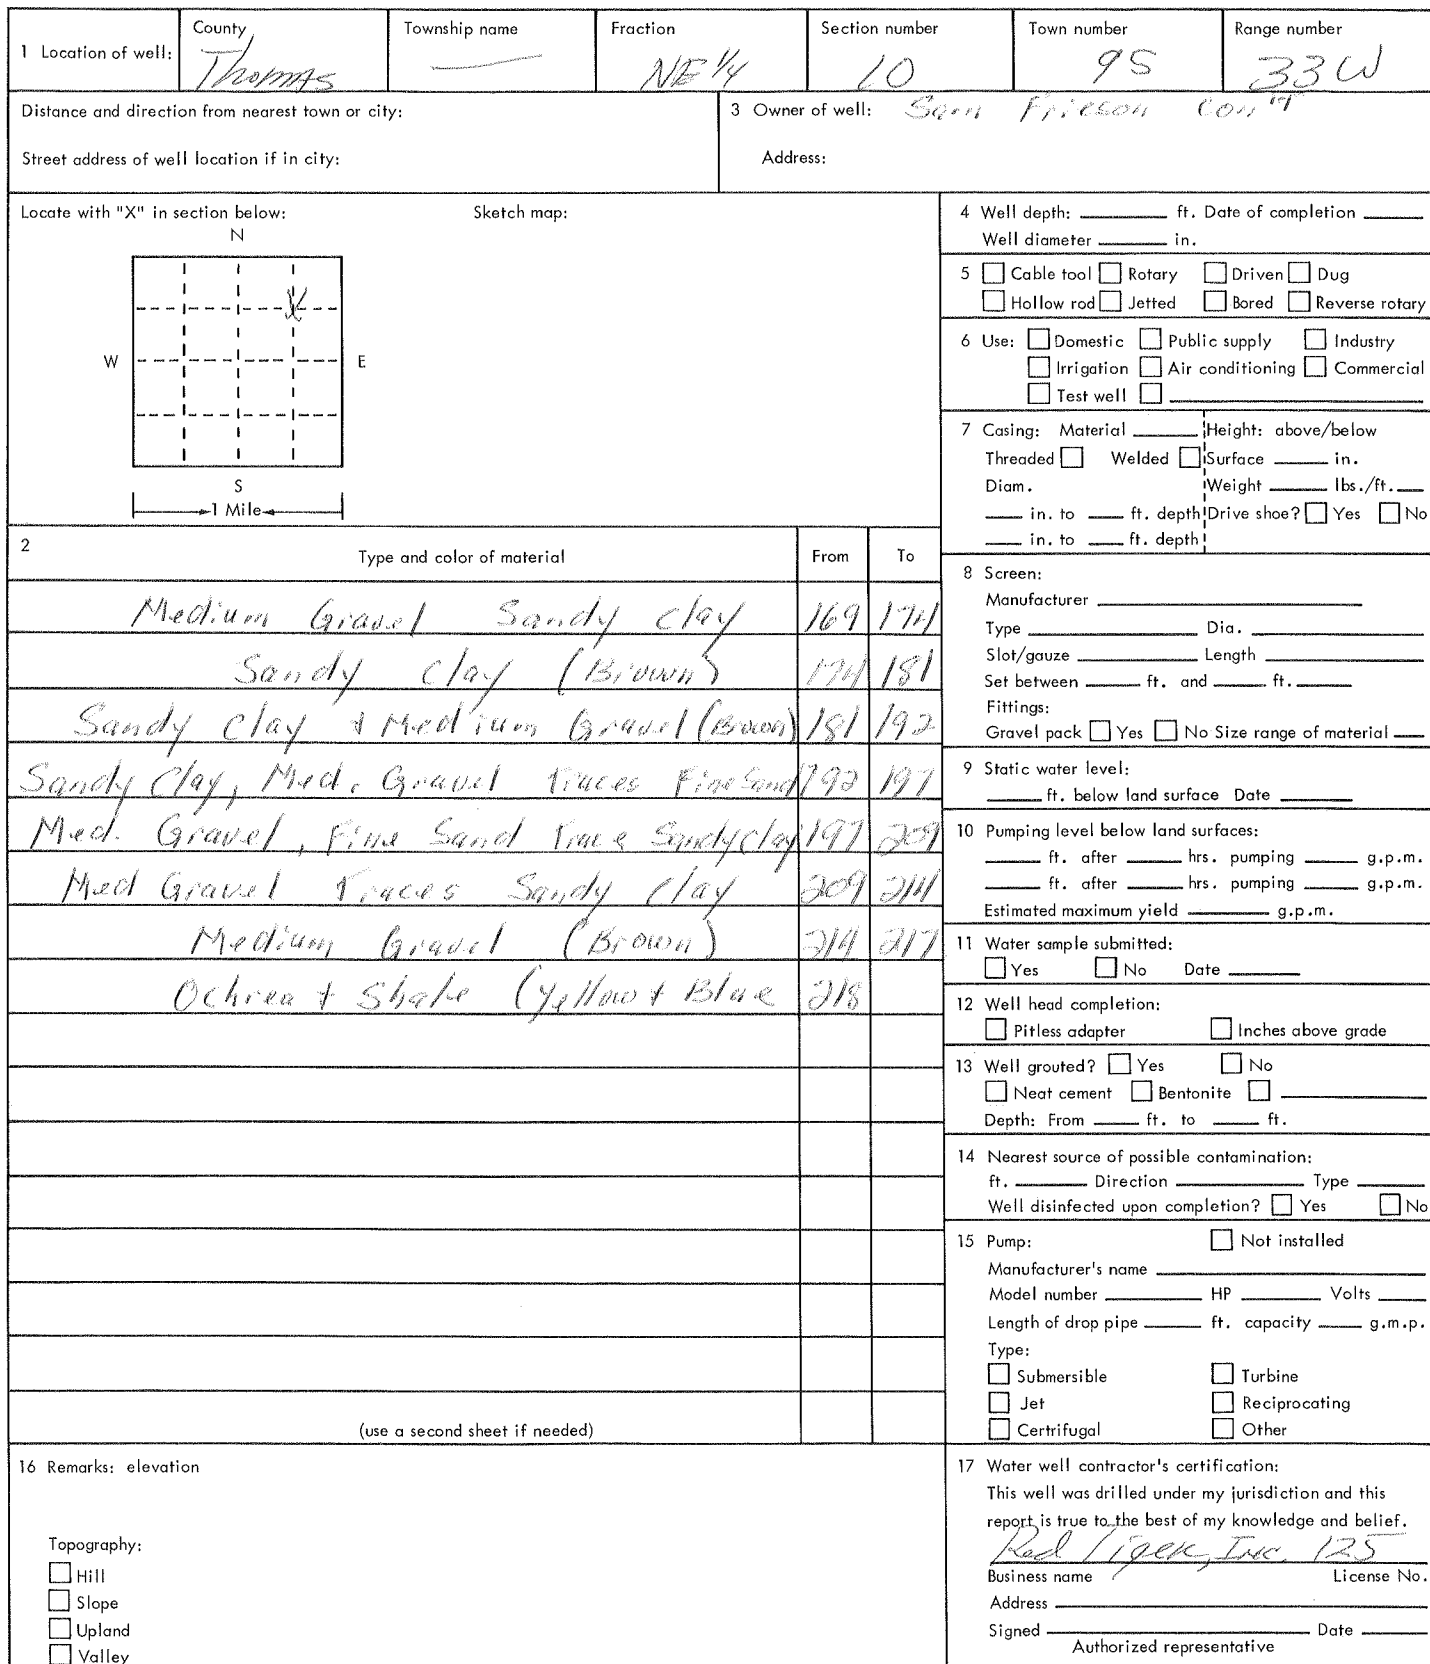 1 Location of well: County Township name Fraction Section number Town number Range number
Thomas — NE 1/4 10 9S 33W
Distance and direction from nearest town or city:
Street address of well location if in city:
3 Owner of well: Sam Frieson Con't
Address:
Locate with "X" in section below: Sketch map:
N
X
W E
S
1 Mile
2 Type and color of material From To
Medium Gravel Sandy Clay 169 174
Sandy Clay (Brown) 174 181
Sandy Clay + Medium Gravel (Brown) 181 192
Sandy Clay, Med. Gravel Traces Fine Sand 192 197
Med. Gravel, Fine Sand Trace Sandy Clay 197 209
Med Gravel Traces Sandy Clay 209 214
Medium Gravel (Brown) 214 217
Ochrea + Shale (Yellow + Blue 218
(use a second sheet if needed)
4 Well depth: ft. Date of completion
Well diameter in.
5 Cable tool Rotary Driven Dug
Hollow rod Jetted Bored Reverse rotary
6 Use: Domestic Public supply Industry
Irrigation Air conditioning Commercial
Test well
7 Casing: Material Height: above/below
Threaded Welded Surface in.
Diam. Weight lbs./ft.
in. to ft. depth Drive shoe? Yes No
in. to ft. depth
8 Screen:
Manufacturer
Type Dia.
Slot/gauze Length
Set between ft. and ft.
Fittings:
Gravel pack Yes No Size range of material
9 Static water level:
ft. below land surface Date
10 Pumping level below land surfaces:
ft. after hrs. pumping g.p.m.
ft. after hrs. pumping g.p.m.
Estimated maximum yield g.p.m.
11 Water sample submitted:
Yes No Date
12 Well head completion:
Pitless adapter Inches above grade
13 Well grouted? Yes No
Neat cement Bentonite
Depth: From ft. to ft.
14 Nearest source of possible contamination:
ft. Direction Type
Well disinfected upon completion? Yes No
15 Pump: Not installed
Manufacturer's name
Model number HP Volts
Length of drop pipe ft. capacity g.m.p.
Type:
Submersible Turbine
Jet Reciprocating
Certrifugal Other
16 Remarks: elevation
Topography:
Hill
Slope
Upland
Valley
17 Water well contractor's certification:
This well was drilled under my jurisdiction and this
report is true to the best of my knowledge and belief.
Red Tiger, Inc. 125
Business name License No.
Address
Signed Date
Authorized representative